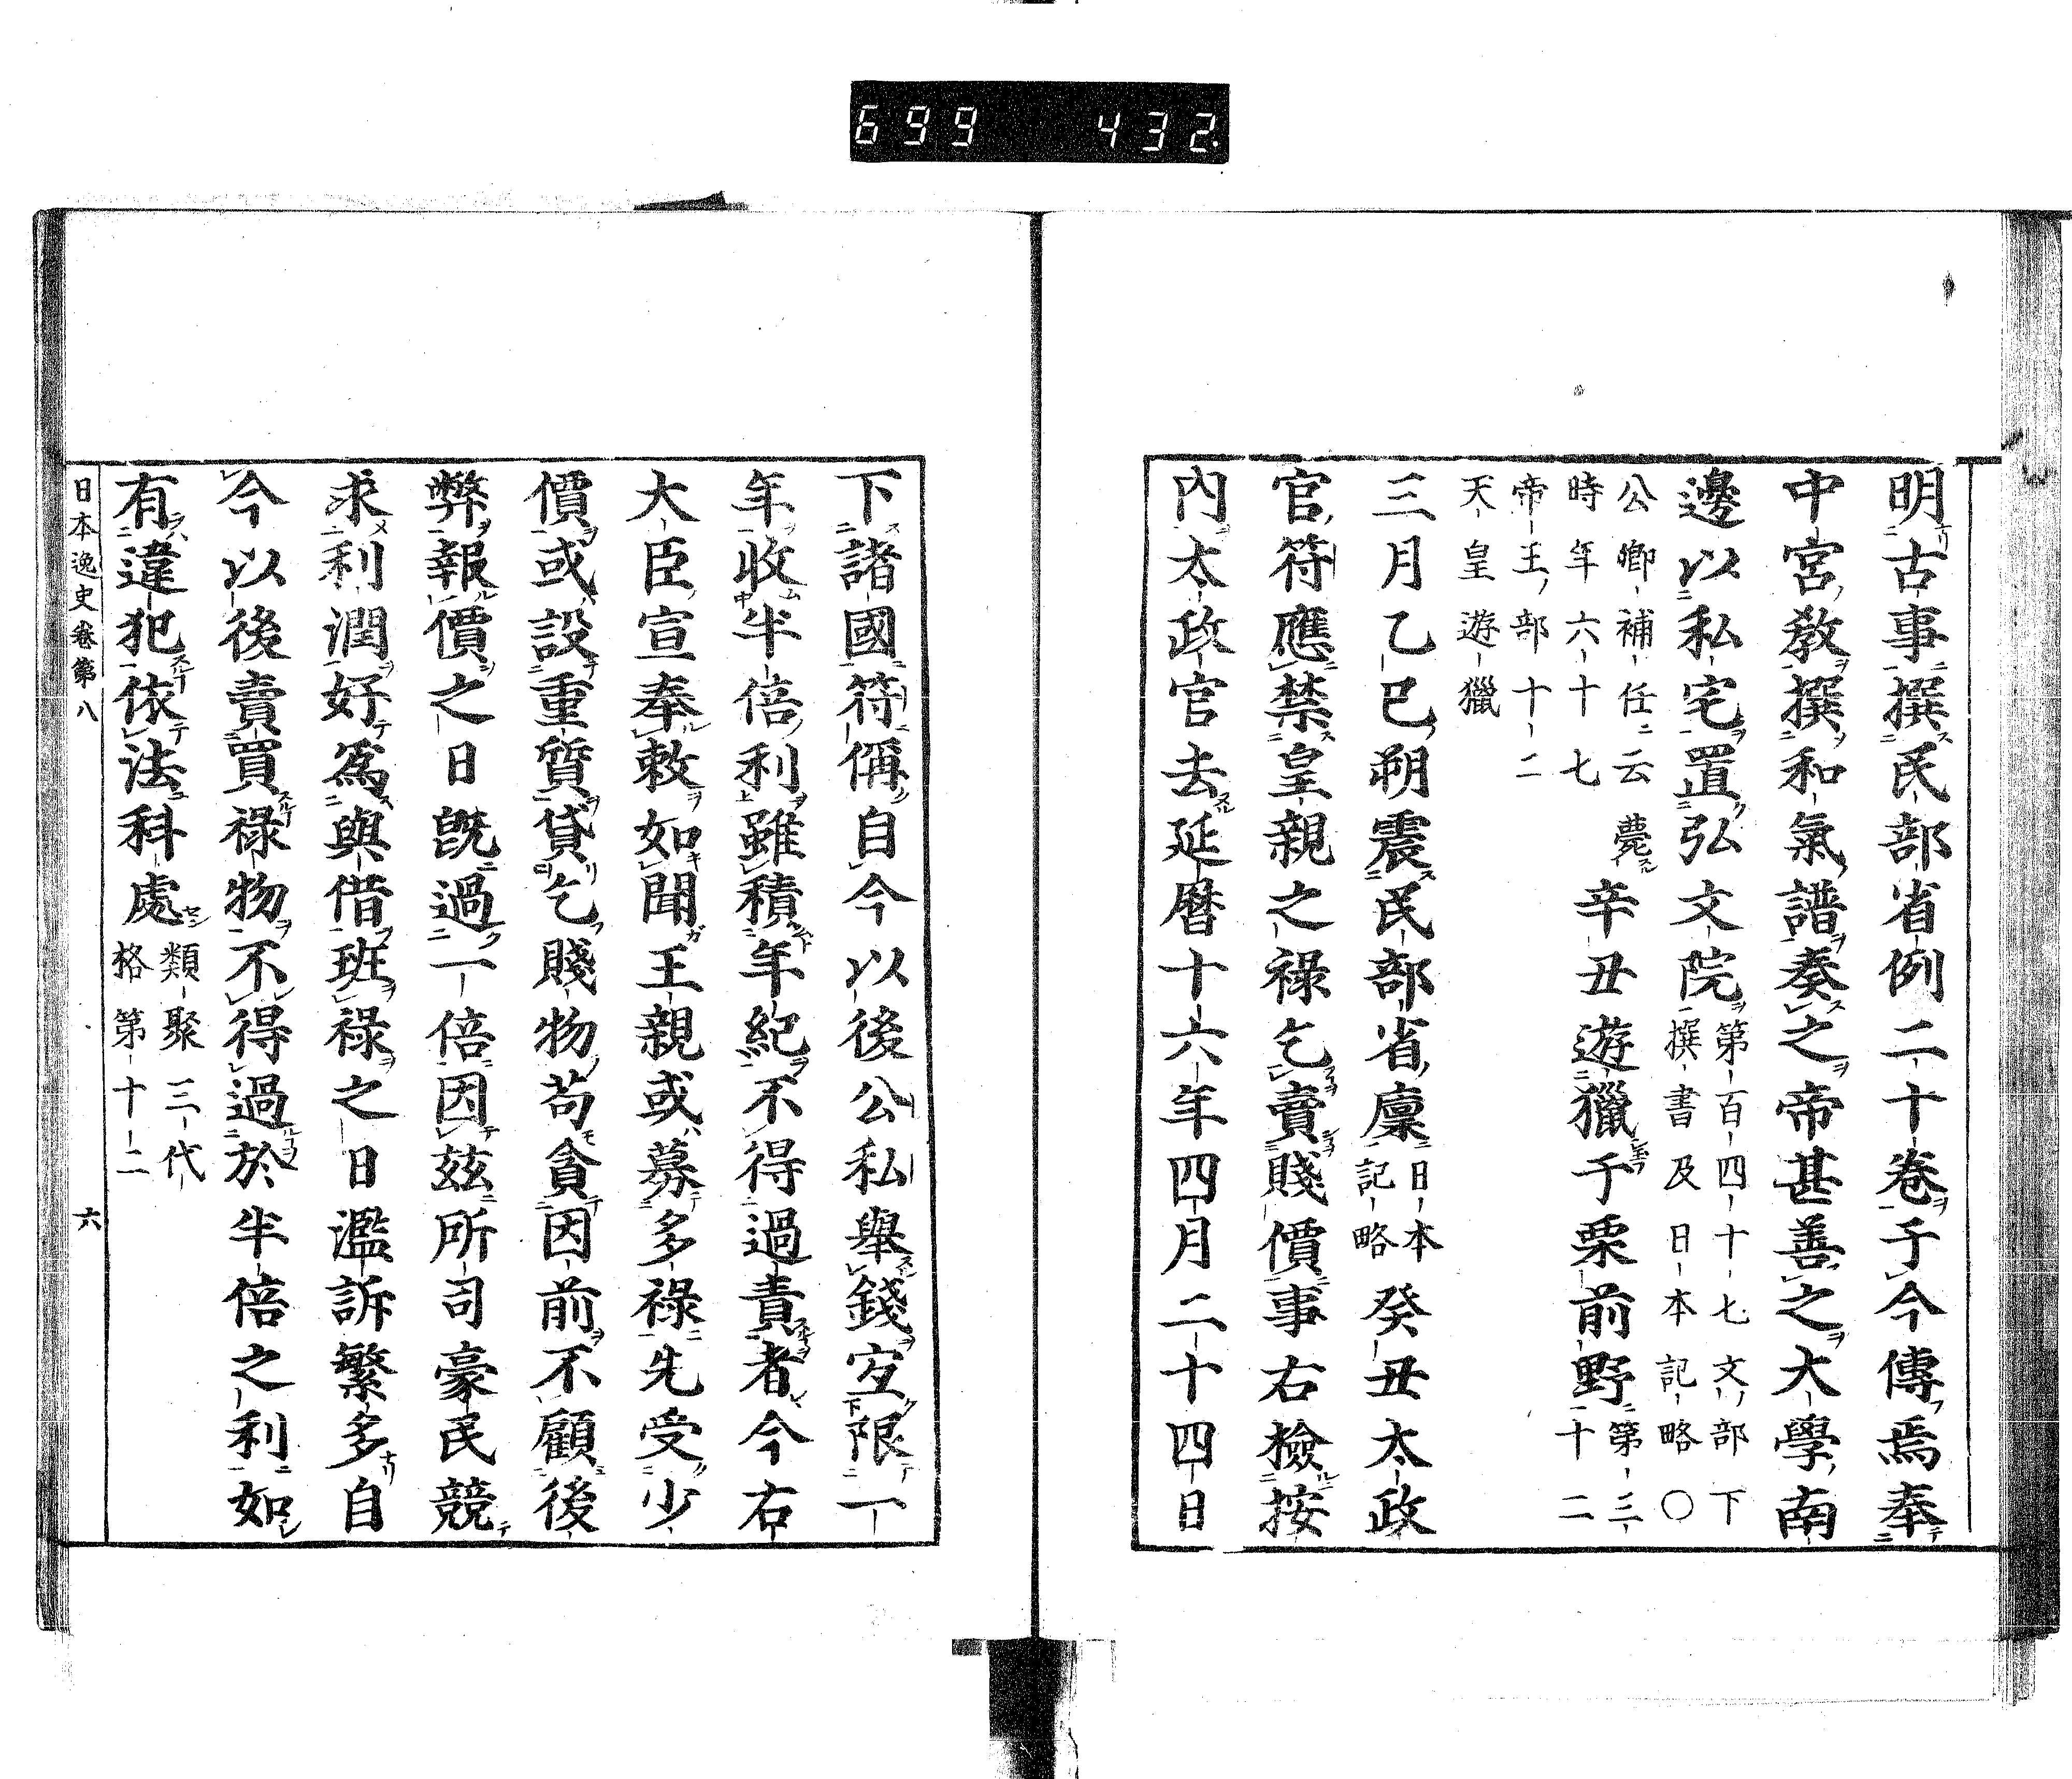 699 432
明古事撰民部省例二十卷于今傳焉奉
中宮教撰和氣譜奏之帝甚善之大學南
邊以私宅置弘文院第百四十七文部下
撰書及日本記略〇
公卿補任云薨
時年六十七
辛丑遊獵于栗前野第三十二
帝王部十二
天皇遊獵
三月乙巳朔震民部省廩日本
記略
癸丑太政
官符應禁皇親之祿乞賣賤價事右檢按
內太政官去延曆十六年四月二十四日
下諸國符偁自今以後公私舉錢宜限一
年收半倍利雖積年紀不得過責者今右
大臣宣奉敕如聞王親或募多祿先受少
價或設重質貸乞賤物苟貪因前不顧後
弊報價之日旣過一倍因玆所司豪民競
求利潤好爲與借班祿之日濫訴繁多自
今以後賣買祿物不得過於半倍之利如
有違犯依法科處類聚三代
格第十二
日本逸史卷第八 六